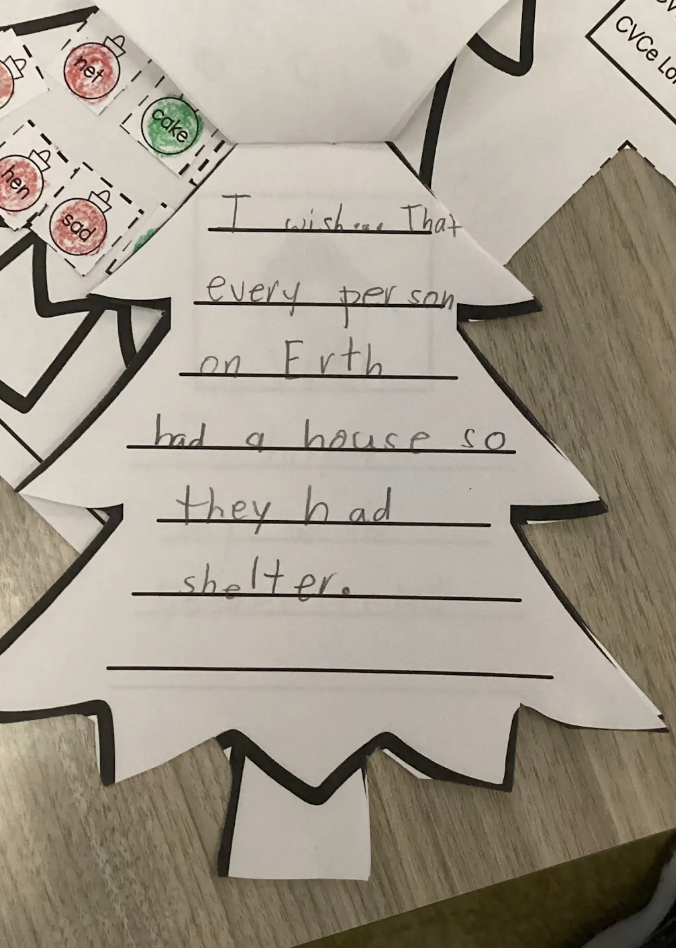 net
cake
hen
sad
CVCe Lo
I wish... That
every person
on Erth
had a house so
they had
shelter.